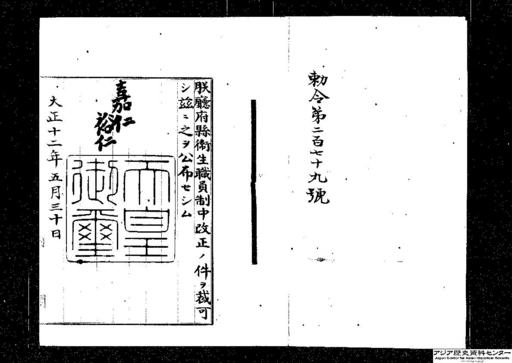 勅令第二百七十九號
朕廳府縣衛生職員制中改正ノ件ヲ裁可
シ茲ニ之ヲ公布セシム
嘉仁
裕仁
天皇
御璽
大正十二年五月三十日
アジア歴史資料センター
Japan Center for Asian Historical Records